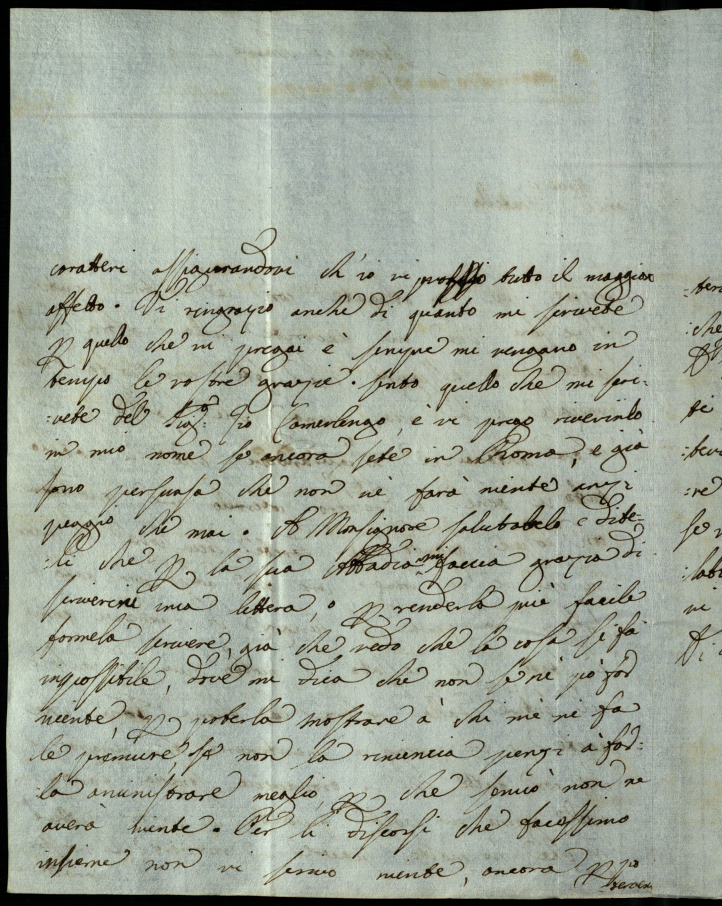 caratteri assicurandovi ch'io vi professo tutto il maggior
affetto. Vi ringrazio anche di quanto mi scrivete
P quello che vi pregai è sempre mi vengano in
tempo le vostre grazie. sento quello che mi scri-
:vete del Sig.r Zio Camerlengo, è vi prego riverirlo
in mio nome se ancora sete in Roma, e già
sono persuasa che non né farà niente anzi
peggio che mai. A Monsignore salutatelo e dite-
:li che P la sua Abbadia mi faccia grazia di
scrivere una lettera, o P renderla più facile
formela scrivere, già che vedo che la cosa si fà
impossibile, dove mi dica che non se nè pò far
niente, P poterla mostrare à chi mè ne fa
le premure, se non la rinuncia penzi à far-
:la aministrare meglio P che senno non ne
averà niente. Per li discorsi che facessimo
insieme non vi scrivo niente, ancora P
:tera
:che
ti
:re
se
vi